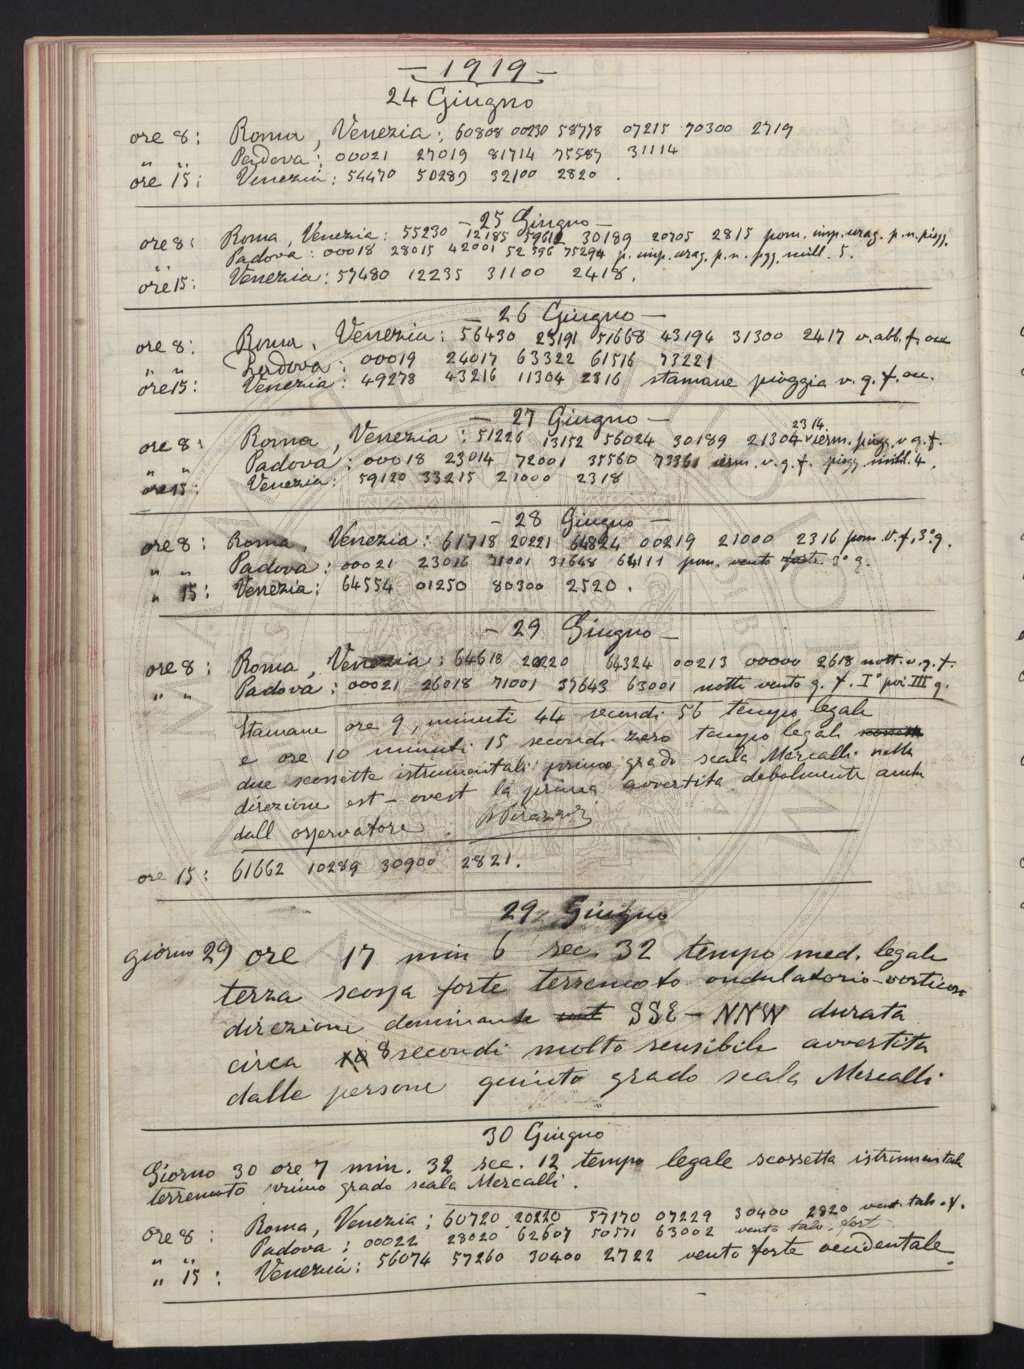 — 1919 —
24 Giugno
ore 8: Roma, Venezia: 60808 00230 58778 07215 70300 2719
" " Padova: 00021 27019 81714 75587 31114
ore 15: Venezia: 54470 50289 32100 2820.
— 25 Giugno —
ore 8: Roma, Venezia: 55230 12185 59612 30189 20705 2815 pom. imp. urag. p. n. piogg.
" " Padova: 00018 28015 42001 52396 75294 p. imp. urag. p. n. pgg. mill. 5.
ore 15: Venezia: 57480 12235 31100 2418.
— 26 Giugno —
ore 8: Roma, Venezia: 56430 23191 51668 43194 31300 2417 v. abb. f. occ
" " Padova: 00019 24017 63322 61516 73221
ore 15: Venezia: 49278 43216 11304 2816 stamane pioggia v. q. f. occ.
— 27 Giugno —
2314
ore 8: Roma, Venezia: 51226 13152 56024 30189 21304 iersn. piogg. v q. f.
" " Padova: 00018 23014 72001 35560 73361 iersn. v. q. f. piogg mill. 4.
ore 15: Venezia: 59120 33215 21000 2318
— 28 Giugno —
ore 8: Roma, Venezia: 61718 20221 64824 00219 21000 2316 pom. v. f. 3° g.
" " Padova: 00021 23016 71001 31648 64111 pom. vento forte 3° g.
" 15: Venezia: 64554 01250 80300 2520.
— 29 Giugno —
ore 8: Roma, Venezia: 64618 20220 64324 00213 00000 2618 nott. v. q. f.
" " Padova: 00021 26018 71001 37643 63001 notte vento q. f. I° poi III g.
Stamane ore 9, minuti 44 secondi 56 tempo legale
e ore 10 minuti 15 secondi zero tempo legale
due scossette istrumentali primo grado scala Mercalli nella
direzione est-ovest la prima avvertita debolmente anche
dall'osservatore.
ore 15: 61662 10289 30900 2821.
29 Giugno
giorno 29 ore 17 min 6 sec. 32 tempo med. legale
terza scossa forte terremoto ondulatorio-vorticoso
direzione dominante SSE-NNW durata
circa 8 secondi molto sensibile avvertita
dalle persone quinto grado scala Mercalli
30 Giugno
Giorno 30 ore 7 min. 32 sec. 12 tempo legale scossetta istrumentale
terremoto primo grado scala Mercalli.
ore 8: Roma, Venezia: 60720 20220 57170 07229 30400 2820 vent. talv. f.
" " Padova: 00022 28020 62607 50571 63002 vento talv. fort
" 15: Venezia: 56074 57260 30400 2722 vento forte occidentale.